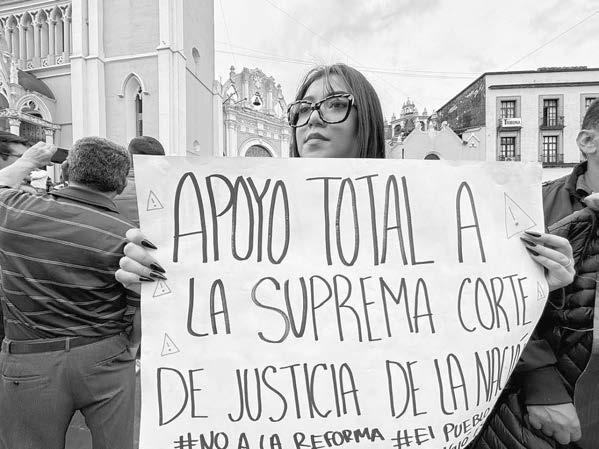 APOYO TOTAL A
LA SUPREMA CORTE
DE JUSTICIA DE LA
#NO A LA REFORMA #El PUEBLO